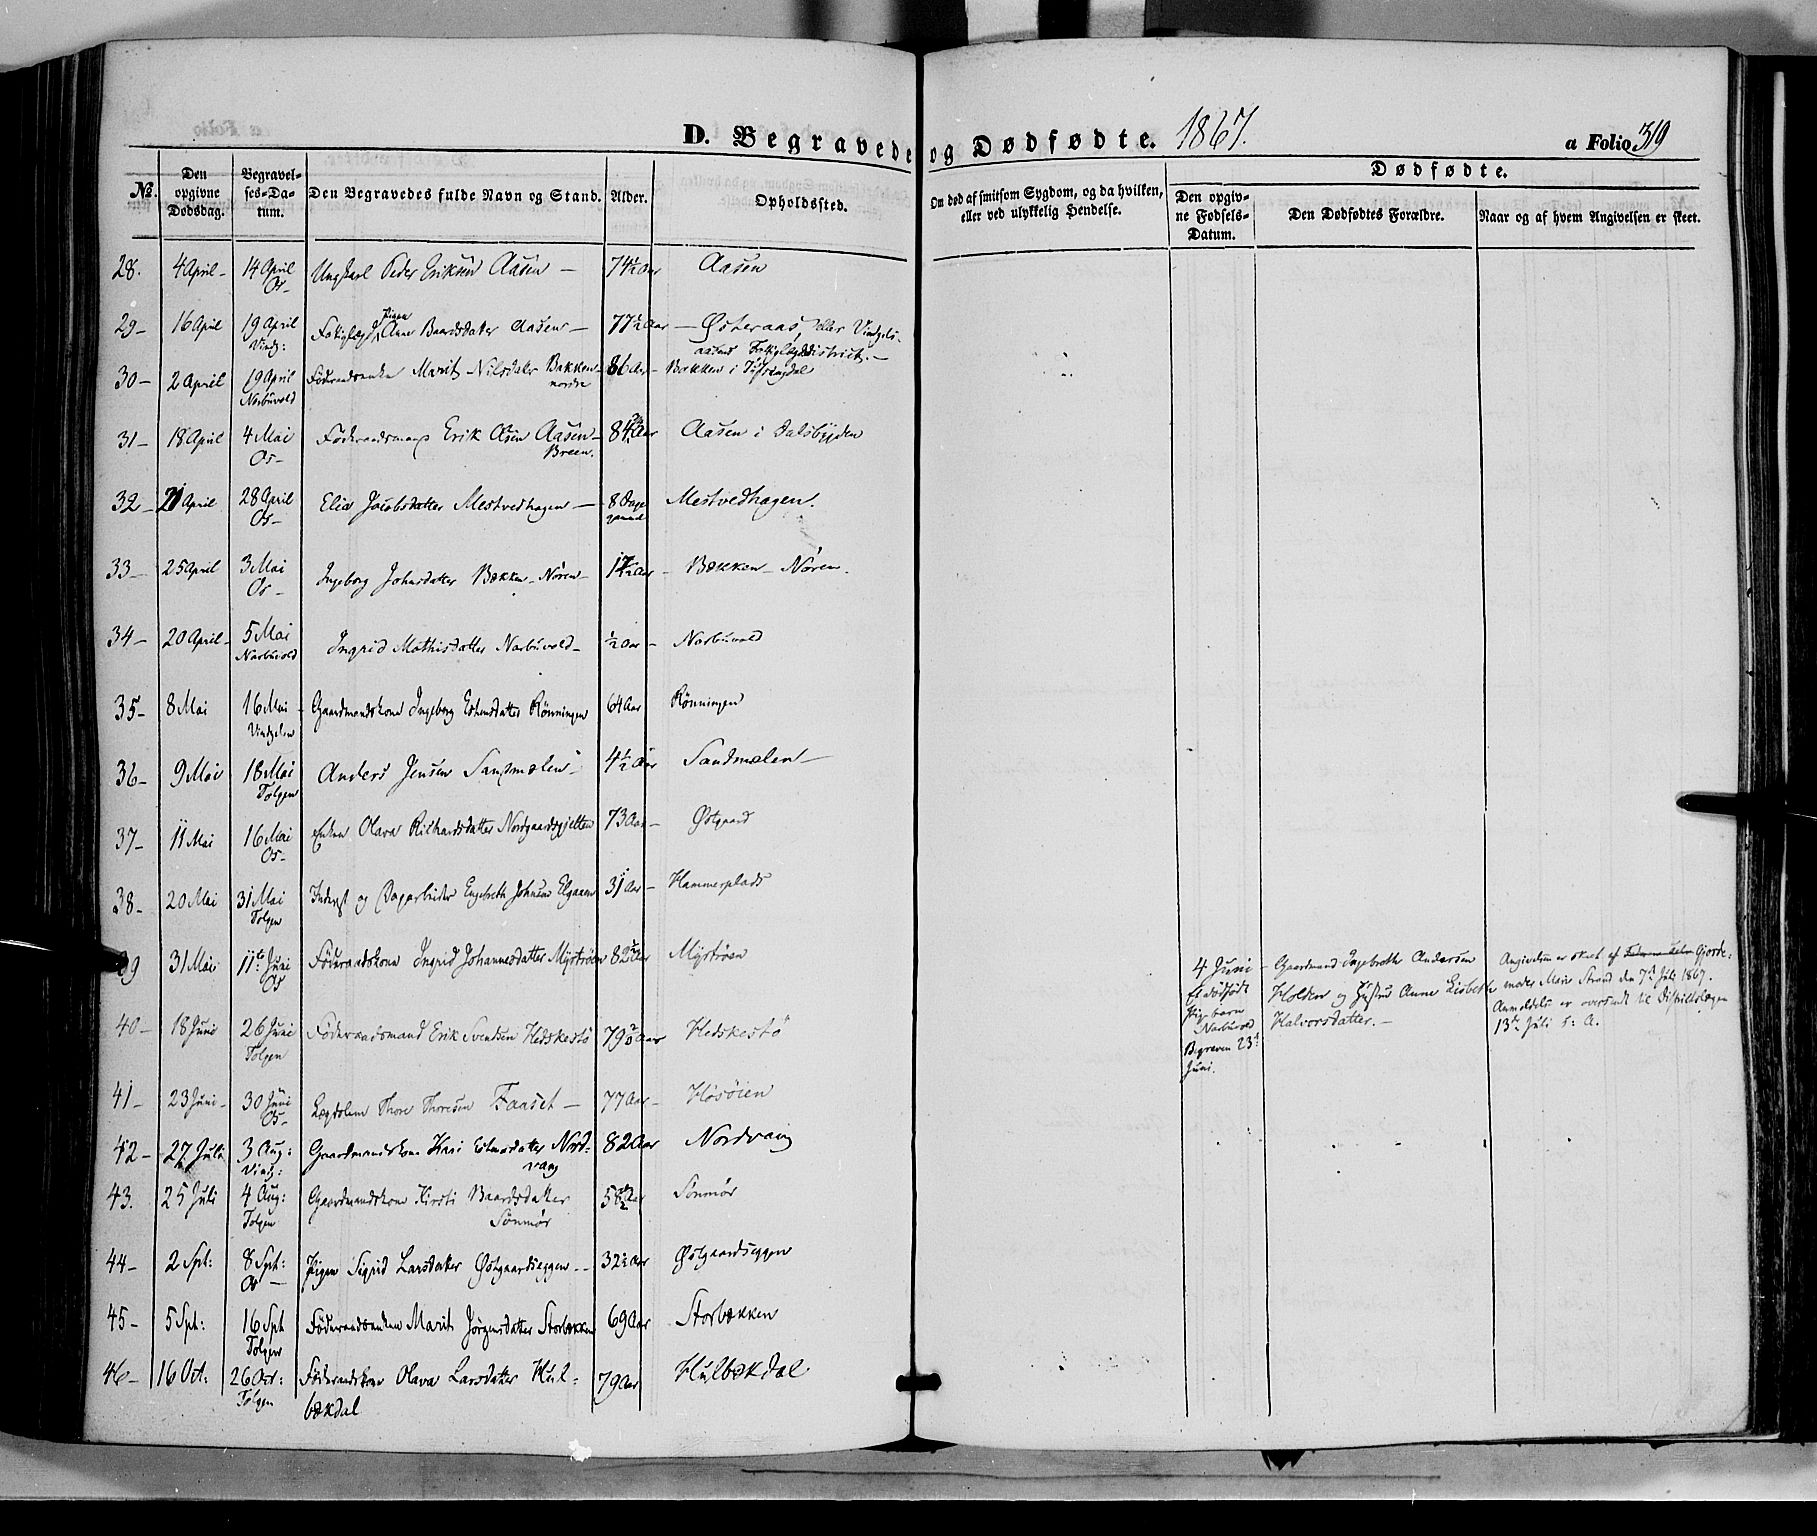 D. Begravede og Dødfødte. 1867. a Folio 319
No. Den opgivne Dødsdag. Begravelses-Datum. Den Begravedes fulde Navn og Stand. Alder. Opholdssted. Om død af smitsom Sygdom, og da hvilken, eller ved ulykkelig Hendelse. Dødfødte.
Den opgivne Fødsels-Datum. Den Dødfødtes Forældre. Naar og af hvem Angivelsen er skeet.
28. 4 April - 14 April Os - Ungkarl Peder Eriksen Aasen - 74½ Aar Aasen
29 - 16 April 19 April Vindg: Pigen Anne Baardsdatter Aasen - 77½ Aar - Østeraas, eller Vindgels-
aasens District. -
30 - 2 April 19 April Narbuvold Føderaadsenke Marit Nilsdatter Bakken nordre 86 Aar - Bakken i
31 - 18 April 4 Mai Os - Føderaadsmand Erik Olsen Aasen - Breen. 84 Aar Aasen i Dalsbygden
32 - 21 April 28 April Os - Elia Jacobsdatter Mestvedhagen - 8 Dage gammel Mestvedhagen.
33 - 25 April 3 Mai Os - Ingeborg Johnsdatter Bækken - Nören - Aar - Bækken - Nören.
34 - 20 April - 5 Mai Narbuvold Ingrid Mathisdatter Narbuvold - ½ Aar - Narbuvold
35 - 8 Mai 16 Mai - Vindgelen Gaardmandskone Ingeborg Estensdatter Rönningen 64 Aar Rönningen
36 - 9 Mai 18 Mai Tolgen Anders Jensen Sandmælen - 4½ Aar Sandmælen -
37 - 11 Mai 16 Mai Os - Enken Olava Richardsdatter Nordgaardsgjetten 73 Aar - Østgaard
38 - 20 Mai 31 Mai Tolgen Inderst og Dagarbeider Engebreth Johnsen Elgaaen 31 Aar - Hammerplads
39 31 Mai 11te Juni Os Föderaadskone Ingrid Johannesdatter Myströen 82½ Aar Myströen
4 Juni - Et dødfødt Pigebarn Narbuvold Begraven 23de Juni.
Gaardmand Ingebreth Andersen Holden og Hustru Anne Lisbeth Halvorsdatter. -
Angivelsen er skeet af Gjorde-
moder Mari Strand den 7de Juli 1867.
Anmeldelse er oversendt til Distriktslægen
13de Juli s: A.
40 - 18 Juni 26 Juni Tolgen Föderaadsmand Erik Svendsen Hedskestö 79 Aar Hedskestö
41 - 23 Juni - 30 Juni Os - Lægdslem Thore Thoresen Faaset - 77 Aar - Hosöien
42 - 27 Juli 3 Aug: Vindg: Gaardmandskone Kari Estensdatter Nord-
vang 82 Aar Nordvang
43. 25 Juli 4 Aug: Tolgen Gaardmandskone Kirsti Baardsdatter
Sönmör 58½ Aar Sönmör
44 - 2 Spt: 8 Spt: Os - Pigen Sigrid Larsdatter Østgaardseggen - - 32½ Aar Østgaardseggen
45 - 5 Spt: 16 Spt Tolgen Föderaadsenken Marit Jörgensdatter Storbækken 69 Aar Storbækken
46 - 16 Oct: 26 Oct: Tolgen Föderaadskone Olava Larsdatter Hul-
bækdal 79 Aar Hulbækdal